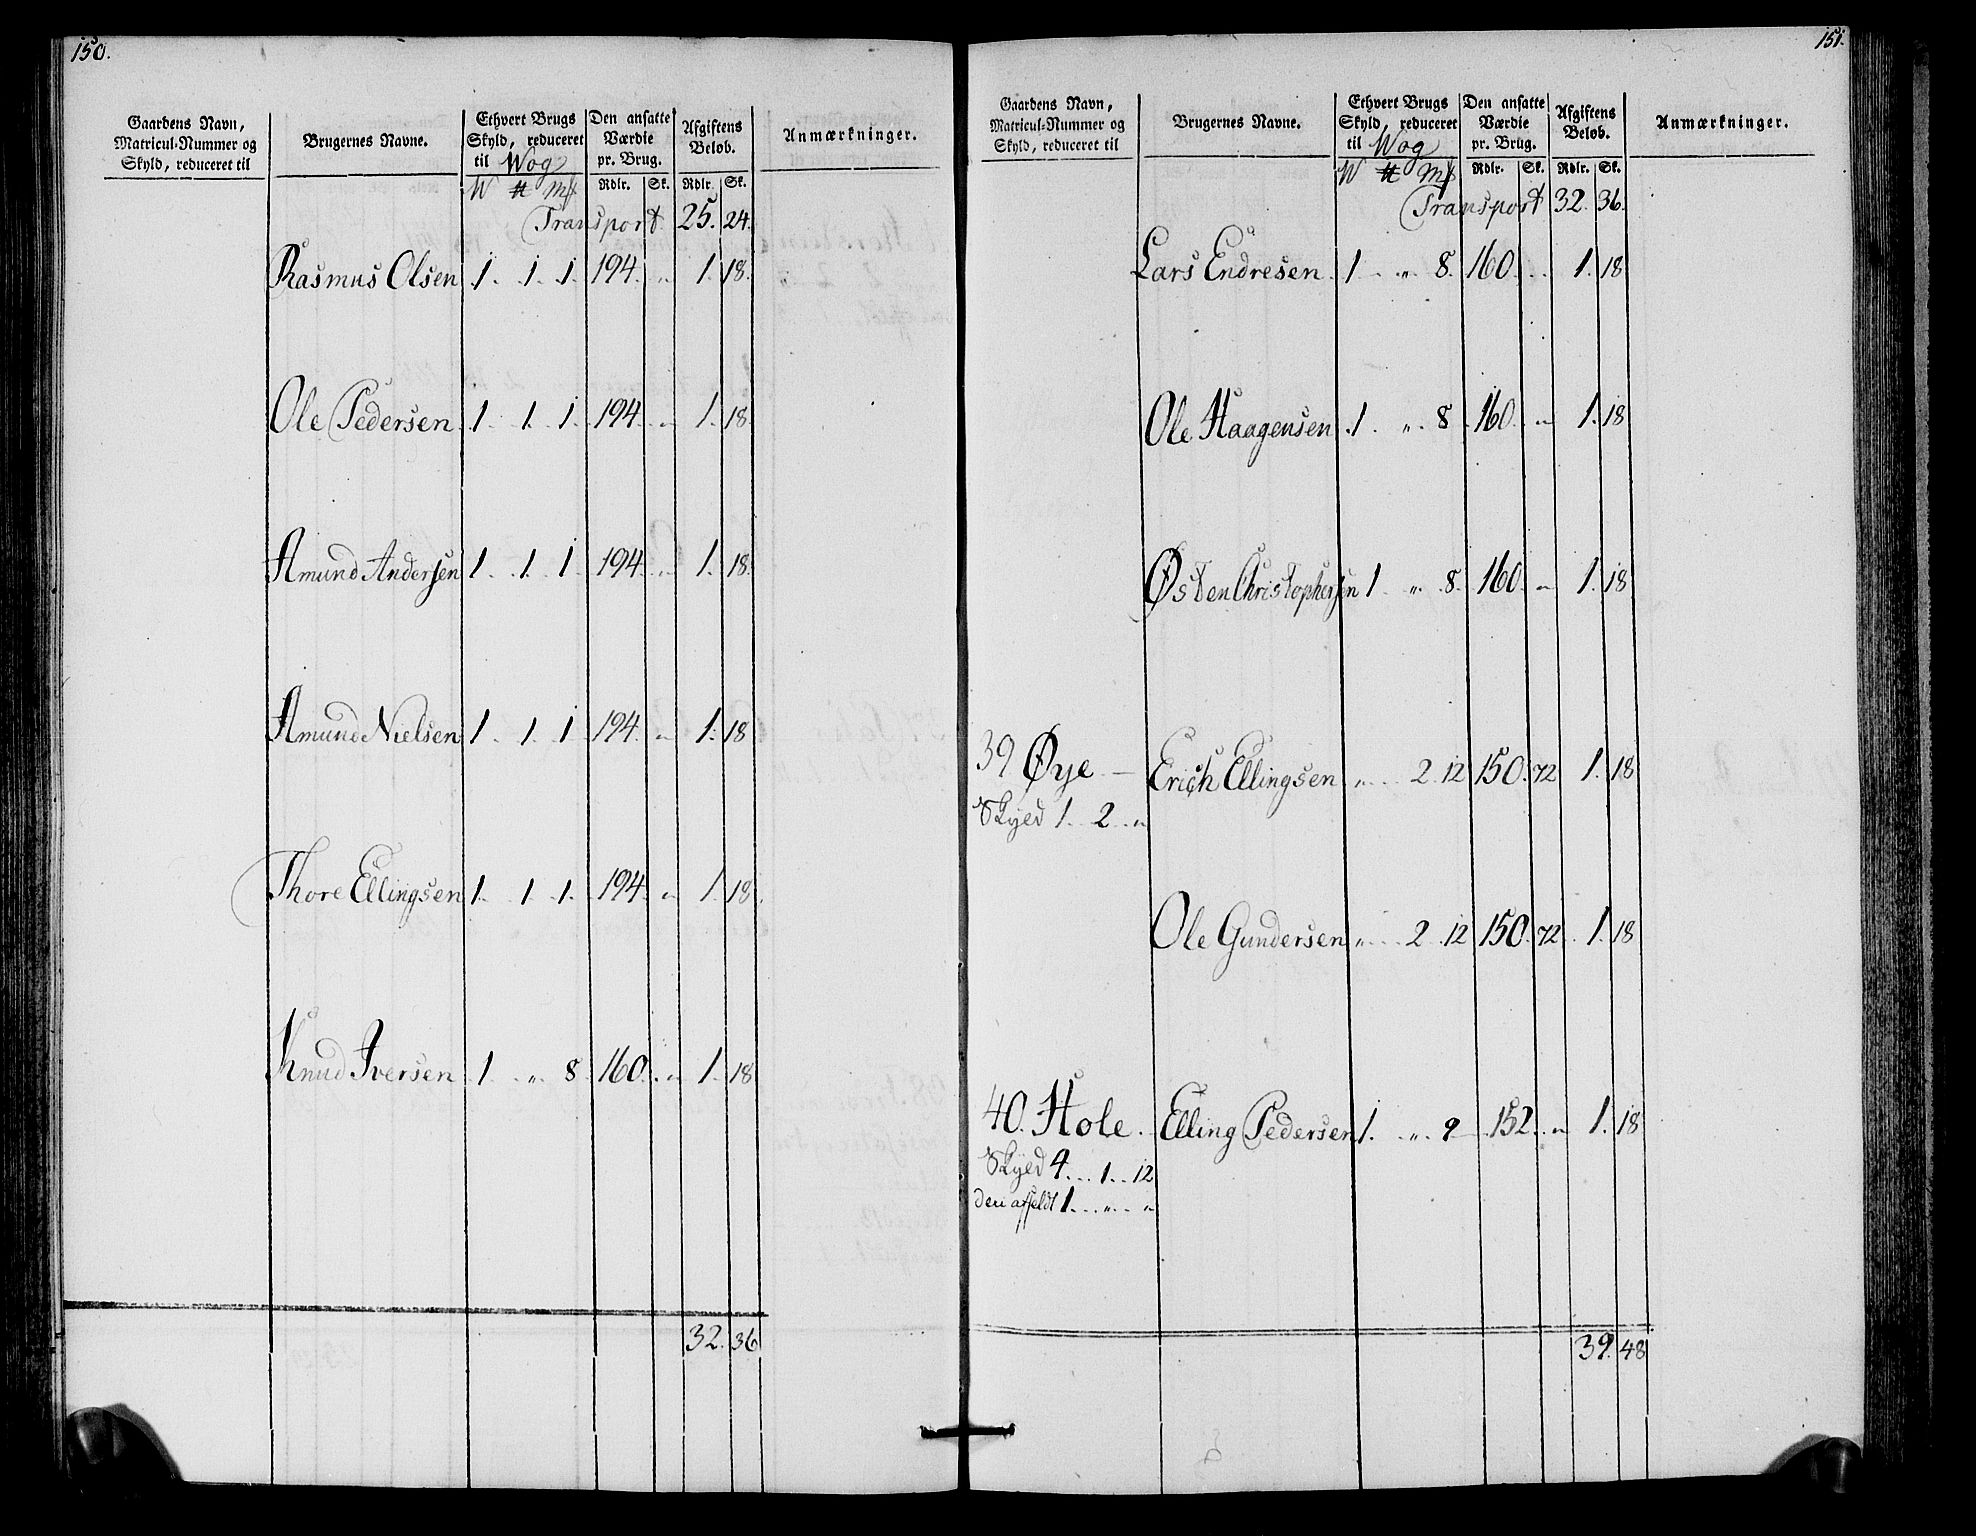 150.
Gaardens Navn, Matricul-Nummer og Skyld, reduceret til | Brugernes Navne. | Ethvert Brugs Skyld, reduceret til Wog W ℔ m𝔰 | Den ansatte Værdie pr. Brug. Rdlr. Sk. | Afgiftens Beløb. Rdlr. Sk. | Anmærkninger.
Transport 25. 24.
Rasmus Olsen 1. 1. 1. 194. „ 1. 18.
Ole Pedersen 1. 1. 1. 194. „ 1. 18.
Amund Andersen 1. 1. 1. 194. „ 1. 18.
Amund Nielsen 1. 1. 1 194. „ 1. 18
Thore Ellingsen 1. 1. 1. 194. „ 1. 18.
Knud Iversen 1. „ 8. 160. „ 1. 18
32. 36
151.
Gaardens Navn, Matricul-Nummer og Skyld, reduceret til | Brugernes Navne. | Ethvert Brugs Skyld, reduceret til Wog W ℔ | Den ansatte Værdie pr. Brug. Rdlr. Sk. | Afgiftens Beløb. Rdlr. Sk. | Anmærkninger.
Transport 32. 36.
Lars Endresen 1. „ 8. 160. . 1. 18
Ole Haagensen 1. „ 8 160. „ 1. 18
Østen Christophersen 1. „ 8. 160. „ 1. 18
39 Øye Erich Ellingsen „ 2. 12 150. 72 1. 18
Skyld 1. 2. „
Ole Gundersen „ 2. 12 150. 72 1. 18
40. Hole. Elling Pedersen 1. „ 9 152. „ 1. 18
Skyld 4. 1. 12
deri affeldt 1. „ „
39. 48